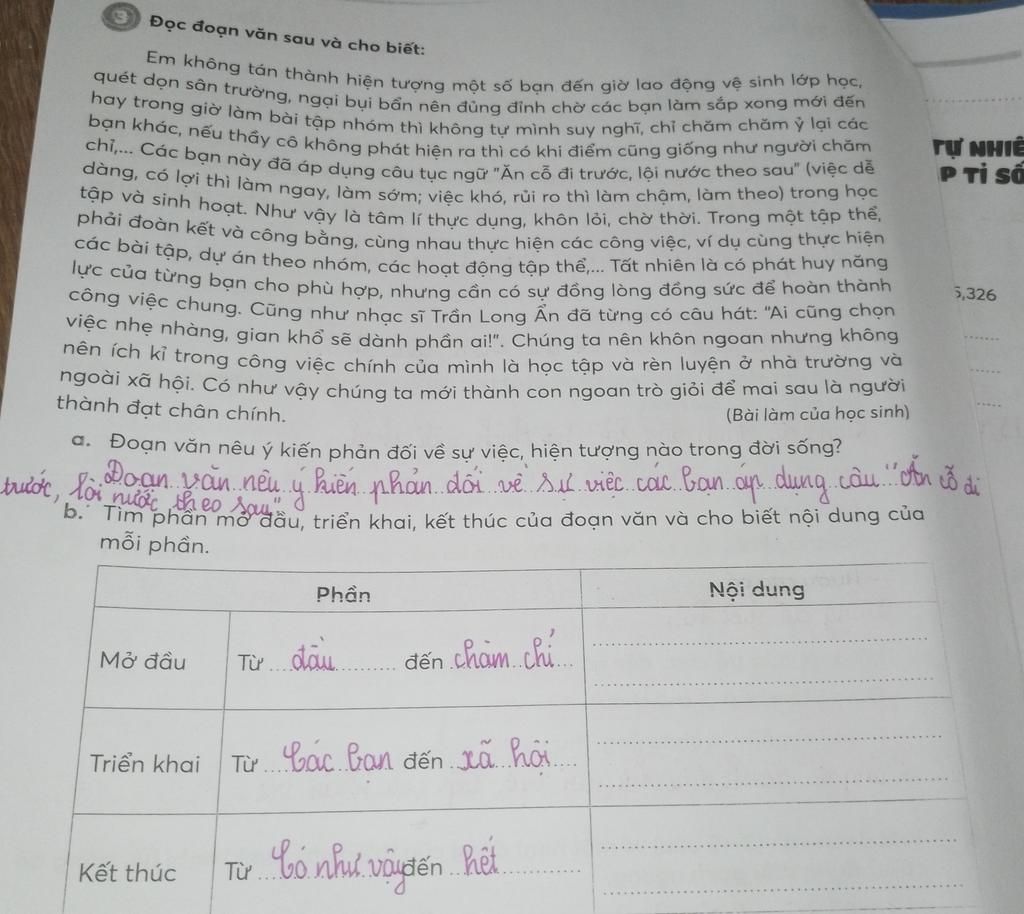 3 Đọc đoạn văn sau và cho biết:
Em không tán thành hiện tượng một số bạn đến giờ lao động vệ sinh lớp học,
quét dọn sân trường, ngại bụi bẩn nên đủng đỉnh chờ các bạn làm sắp xong mới đến
hay trong giờ làm bài tập nhóm thì không tự mình suy nghĩ, chỉ chăm chăm ỷ lại các
bạn khác, nếu thầy cô không phát hiện ra thì có khi điểm cũng giống như người chăm
chỉ,... Các bạn này đã áp dụng câu tục ngữ "Ăn cỗ đi trước, lội nước theo sau" (việc dễ
dàng, có lợi thì làm ngay, làm sớm; việc khó, rủi ro thì làm chậm, làm theo) trong học
tập và sinh hoạt. Như vậy là tâm lí thực dụng, khôn lỏi, chờ thời. Trong một tập thể,
phải đoàn kết và công bằng, cùng nhau thực hiện các công việc, ví dụ cùng thực hiện
các bài tập, dự án theo nhóm, các hoạt động tập thể,... Tất nhiên là có phát huy năng
lực của từng bạn cho phù hợp, nhưng cần có sự đồng lòng đồng sức để hoàn thành
công việc chung. Cũng như nhạc sĩ Trần Long Ẩn đã từng có câu hát: "Ai cũng chọn
việc nhẹ nhàng, gian khổ sẽ dành phần ai!". Chúng ta nên khôn ngoan nhưng không
nên ích kỉ trong công việc chính của mình là học tập và rèn luyện ở nhà trường và
ngoài xã hội. Có như vậy chúng ta mới thành con ngoan trò giỏi để mai sau là người
thành đạt chân chính.
(Bài làm của học sinh)
a. Đoạn văn nêu ý kiến phản đối về sự việc, hiện tượng nào trong đời sống?
Đoạn văn nêu ý kiến phản đối về sự việc các bạn áp dụng câu "Ăn cỗ đi
trước, lội nước theo sau"
b. Tìm phần mở đầu, triển khai, kết thúc của đoạn văn và cho biết nội dung của
mỗi phần.
Phần Nội dung
Mở đầu Từ đầu đến chăm chỉ
Triển khai Từ Các bạn đến xã hội
Kết thúc Từ Có như vậy đến hết
TỰ NHIÊ
P TỈ SỐ
5,326